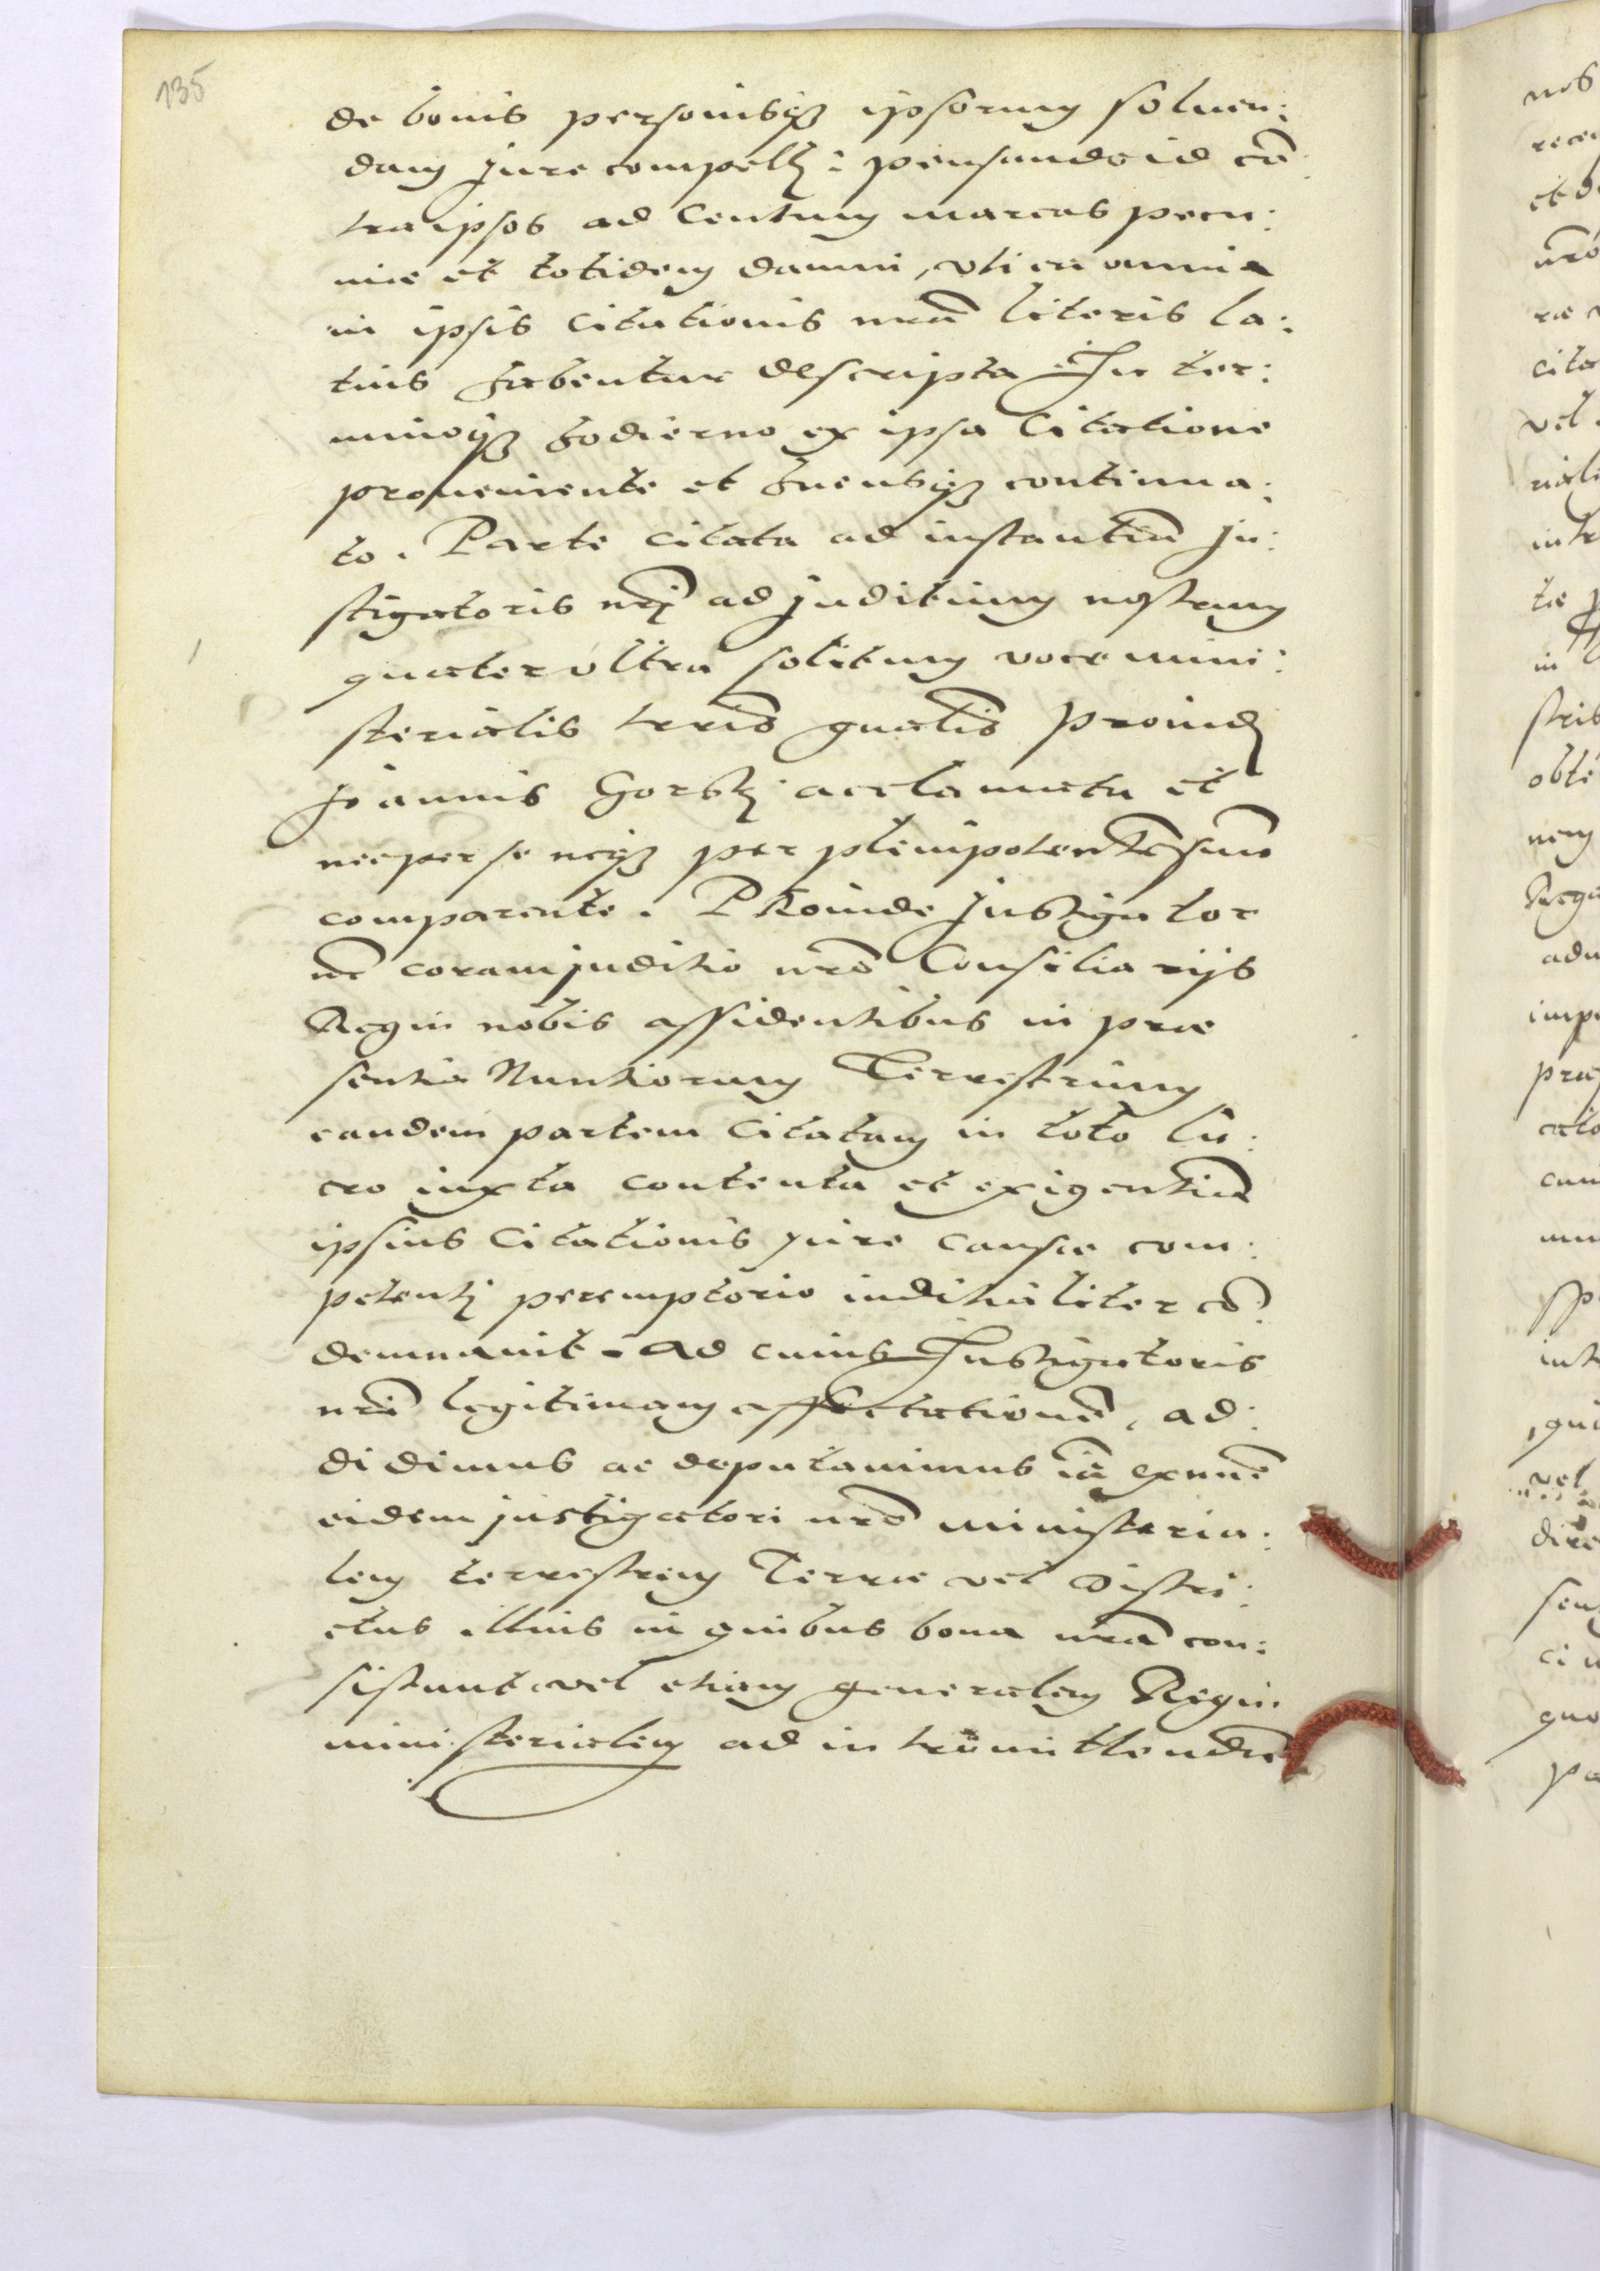 135
de bonis personisq3 ipsorum soluen:
dam Jure compelli: pensando id cõ:
tra ipsos ad Centum marcas pecu:
niæ et totidem damni, vti ea omnia
in ipsis Citationis nrã literis la:
tius habentur descripta. In ter:
minoq3 hodierno ex ipsa Citatione
proueniente et hucusq3 continua:
to. Parte Citata ad instantiã In:
stigatoris nrj ad Juditium nostrum
quater vltra solitum voce mini:
sterialis Gnalis Prouidj
Joannis Gorskj acclamata et
nec per se neq3 per plenipotentẽ suũ
comparente. Proinde Instigator
nr̃ coram juditio nrõ Consiliarijs
Regni nobis assidentibus in præ
sentia Nuntiorum Terrestrium
eandem partem Citatam in toto lu:
cro iuxta contenta et exigentiã
ipsius Citationis jure causæ com:
petentj peremptorio iuditialiter cõ:
demnauit. Ad cuius Instigatoris
nrĩ legitimam affectationẽ, ad:
didimus ac deputauimus iã ex nũc
eidem justigatori nrõ ministeria:
lem terrestrem Terræ vel Distri:
ctus illius in quibus bona nrã con:
sistunt, vel etiam generalem Regni
ministerialem ad intromittendũ